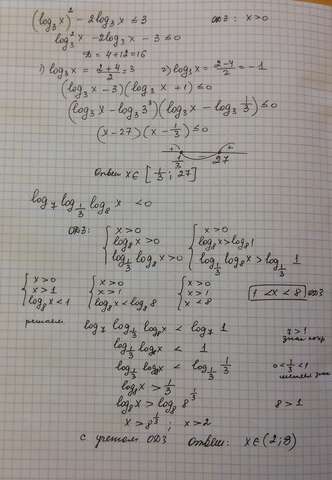 (log₃x)² - 2log₃x ≤ 3 ОДЗ: x>0
log₃²x - 2log₃x - 3 ≤ 0
D = 4+12=16
1) log₃x = (2+4)/2 = 3 2) log₃x = (2-4)/2 = -1
(log₃x - 3)(log₃x + 1) ≤ 0
(log₃x - log₃3³)(log₃x - log₃ 1/3) ≤ 0
(x-27)(x - 1/3) ≤ 0
+ - +
1/3 27
Ответ x∈[1/3; 27]
log₇ log_{1/3} log₈ x < 0
ОДЗ: { x>0 { x>0
log₈x>0 log₈x>log₈1
log_{1/3} log₈x>0 log_{1/3} log₈x > log_{1/3} 1
{ x>0 { x>0 { x>0
x>1 x>1 x>1
log₈x<1 log₈x<log₈8 x<8
1 <x <8 ОДЗ
решаем log₇ log_{1/3} log₈x < log₇ 1 7>1
log_{1/3} log₈x < 1
log_{1/3} log₈x < log_{1/3} 1/3 0<1/3<1
log₈x > 1/3
log₈x > log₈ 8^{1/3} 8>1
x > 8^{1/3} ; x>2
с учетом ОДЗ Ответ: x∈(2;8)